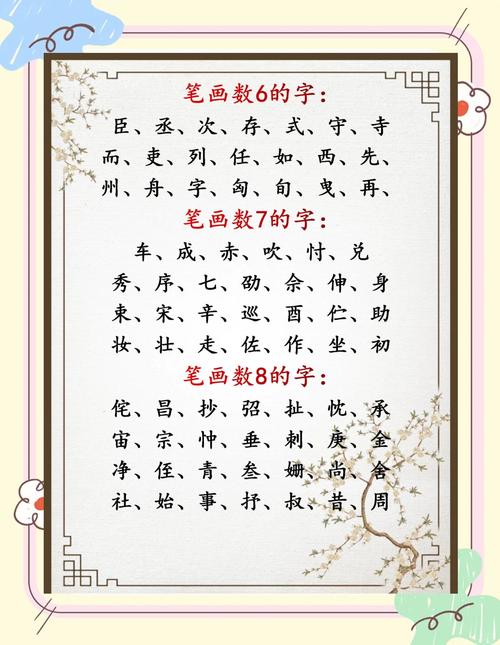 笔画数6的字：
臣、丞、次、存、式、守、寺
而、吏、列、任、如、西、先、
州、舟、字、匈、旬、曳、再、
笔画数7的字：
车、成、赤、吹、忖、兑
秀、序、七、劭、佘、伸、身
束、宋、辛、巡、酉、伫、助
妆、壮、走、佐、作、坐、初
笔画数8的字：
侘、昌、抄、弨、扯、忱、承
宙、宗、忡、垂、刺、庚、金
净、侄、青、叁、姗、尚、舍
社、始、事、抒、叔、昔、周